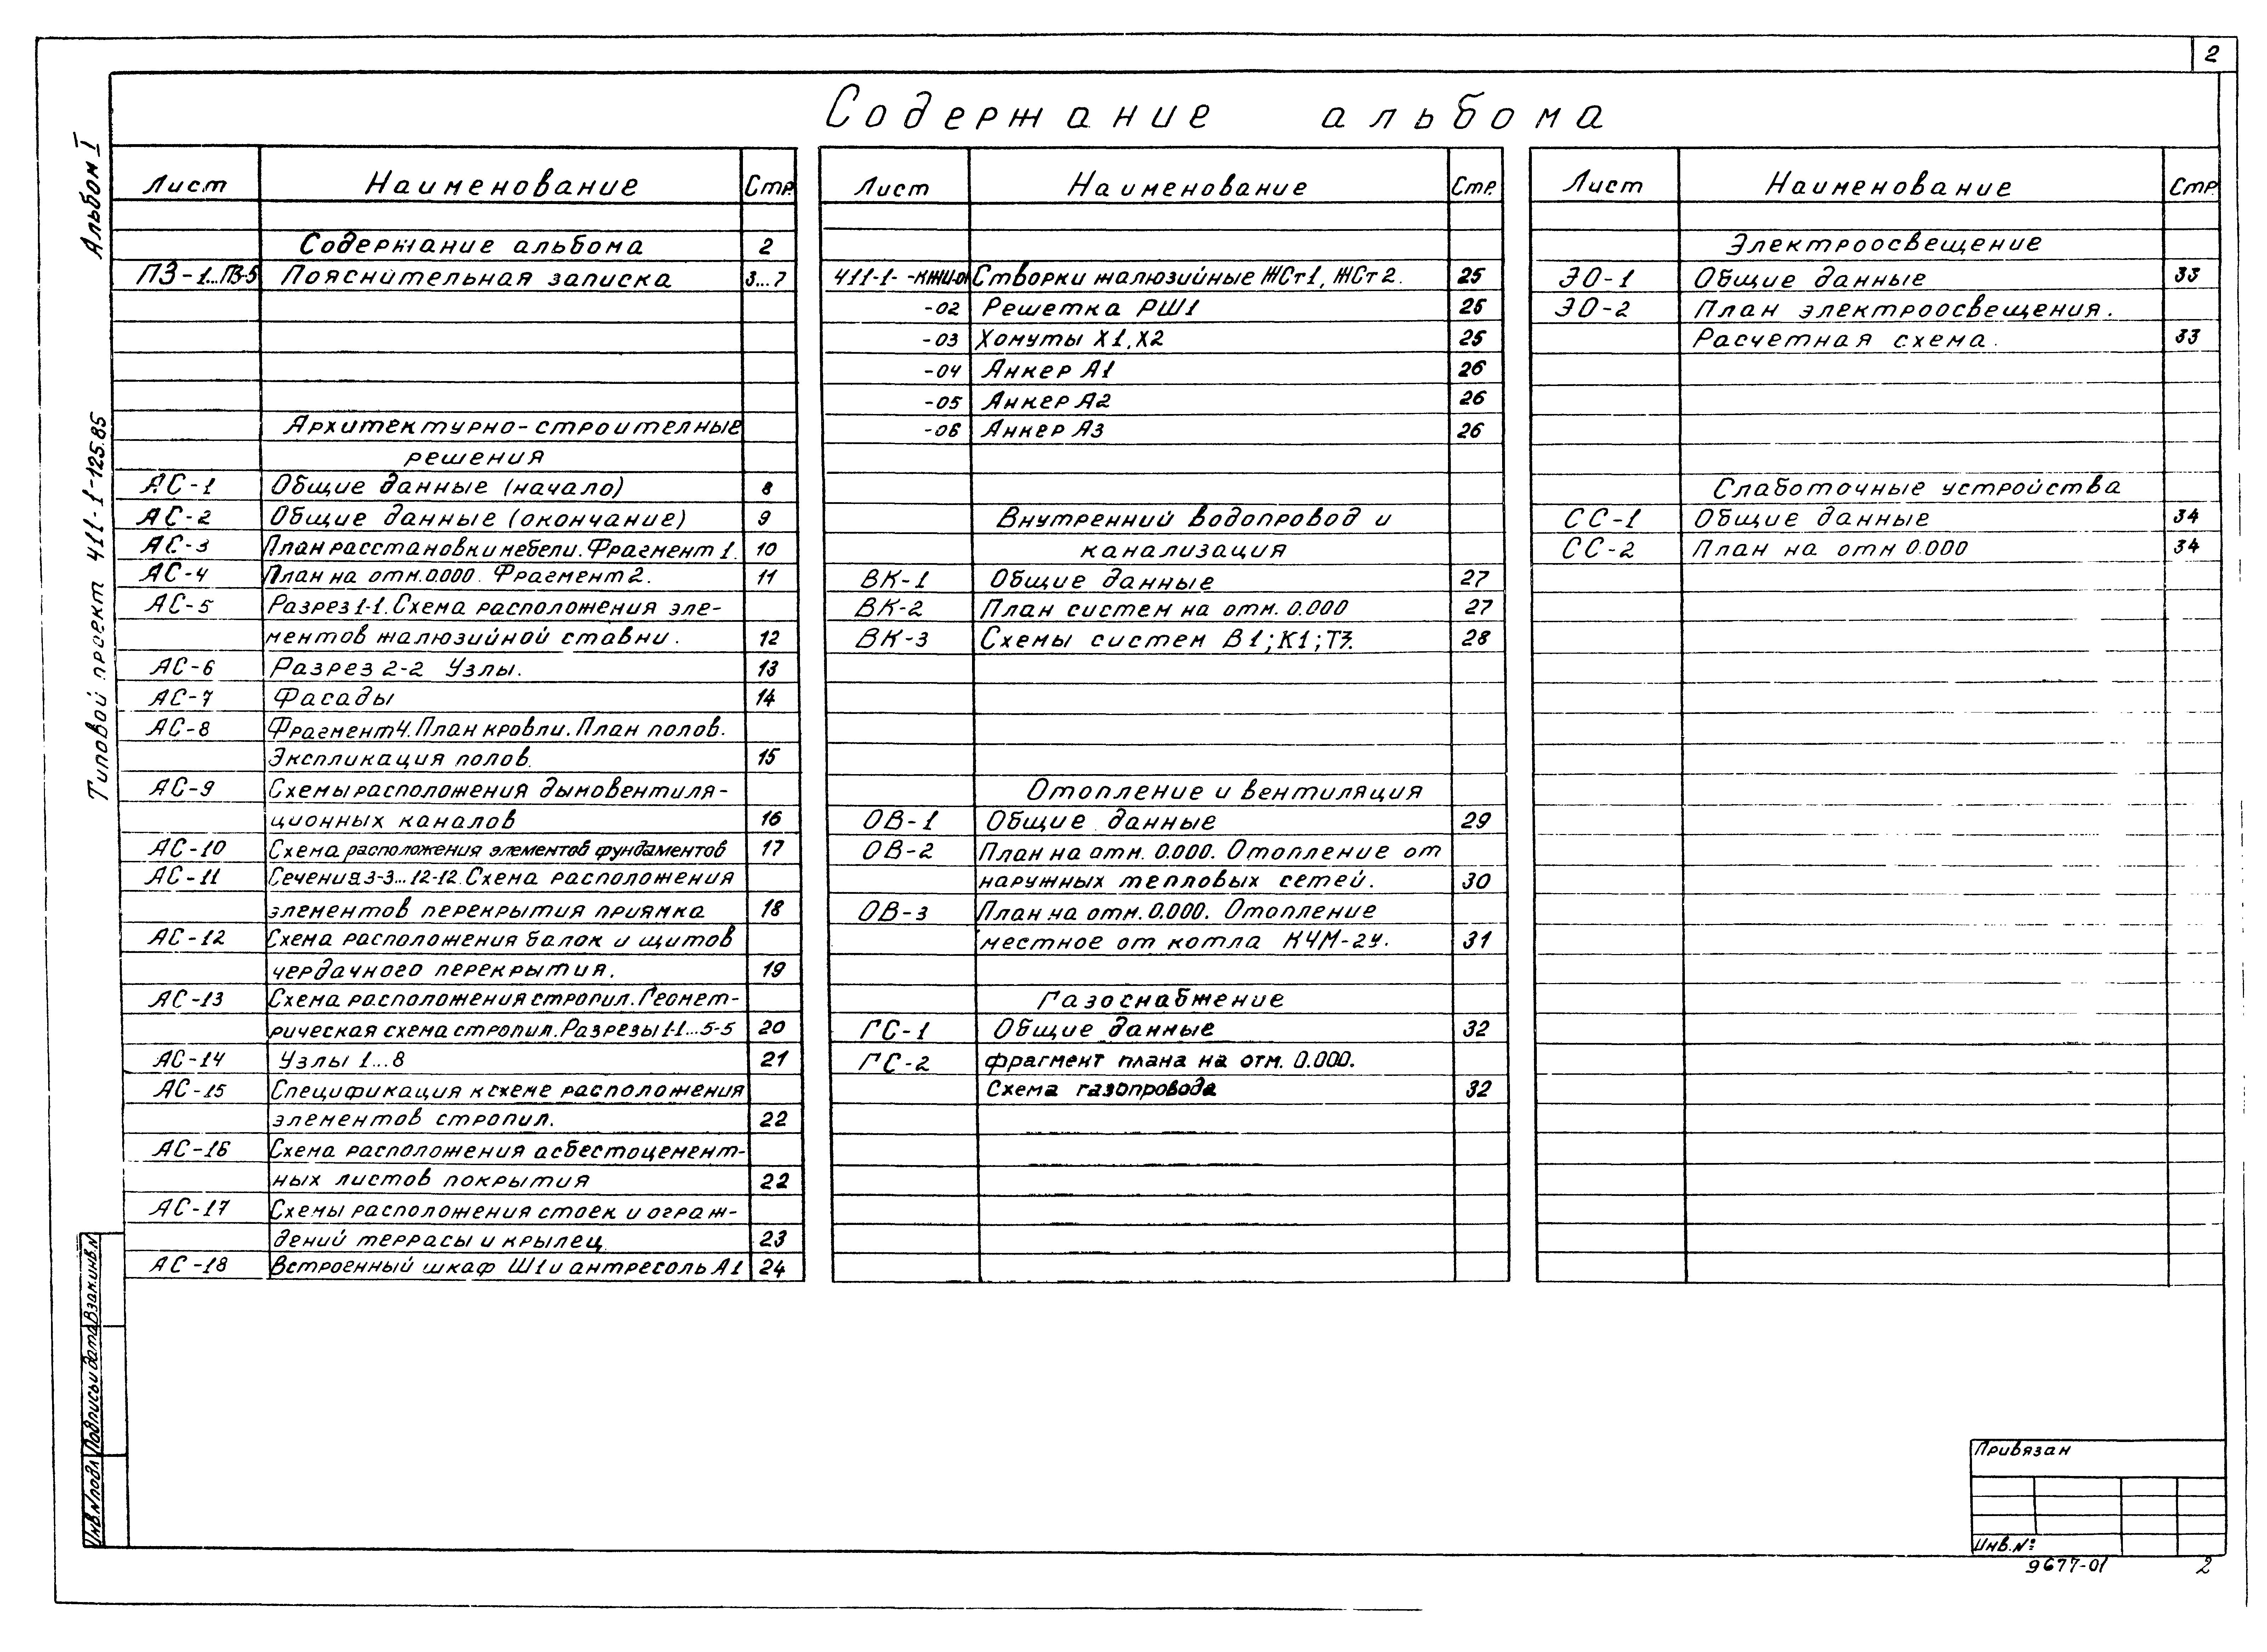 2
Содержание альбома
Альбом I
Типовой проект 411-1-125.85
Лист Наименование Стр.
Содержание альбома 2
ПЗ-1...ПЗ-5 Пояснительная записка 3...7
Архитектурно-строителные
решения
АС-1 Общие данные (начало) 8
АС-2 Общие данные (окончание) 9
АС-3 План расстановки мебели. Фрагмент 1. 10
АС-4 План на отм. 0.000. Фрагмент 2. 11
АС-5 Разрез 1-1. Схема расположения эле-
ментов жалюзийной ставни. 12
АС-6 Разрез 2-2 Узлы. 13
АС-7 Фасады 14
АС-8 Фрагмент 4. План кровли. План полов.
Экспликация полов. 15
АС-9 Схемы расположения дымовентиля-
ционных каналов 16
АС-10 Схема расположения элементов фундаментов 17
АС-11 Сечения 3-3...12-12. Схема расположения
элементов перекрытия приямка 18
АС-12 Схема расположения балок и щитов
чердачного перекрытия. 19
АС-13 Схема расположения стропил. Геомет-
рическая схема стропил. Разрезы 1-1...5-5 20
АС-14 Узлы 1...8 21
АС-15 Спецификация к схеме расположения
элементов стропил. 22
АС-16 Схема расположения асбестоцемент-
ных листов покрытия 22
АС-17 Схемы расположения стоек и ограж-
дений террасы и крылец 23
АС-18 Встроенный шкаф Ш1 и антресоль А1 24
Лист Наименование Стр.
411-1- -КЖИ-01 Створки жалюзийные ЖСт1, ЖСт2. 25
-02 Решетка РШ1 25
-03 Хомуты Х1, Х2 25
-04 Анкер А1 26
-05 Анкер А2 26
-06 Анкер А3 26
Внутренний водопровод и
канализация
ВК-1 Общие данные 27
ВК-2 План систем на отм. 0.000 27
ВК-3 Схемы систем В1; К1; Т3. 28
Отопление и вентиляция
ОВ-1 Общие данные 29
ОВ-2 План на отм. 0.000. Отопление от
наружных тепловых сетей. 30
ОВ-3 План на отм. 0.000. Отопление
местное от котла КЧМ-2У. 31
Газоснабжение
ГС-1 Общие данные 32
ГС-2 фрагмент плана на отм. 0.000.
Схема газопровода 32
Лист Наименование Стр.
Электроосвещение
ЭО-1 Общие данные 33
ЭО-2 План электроосвещения.
Расчетная схема. 33
Слаботочные устройства
СС-1 Общие данные 34
СС-2 План на отм 0.000 34
Взам.инв.N
Подпись и дата
Инв.N подл
Привязан
Инв.№:
9677-01 2